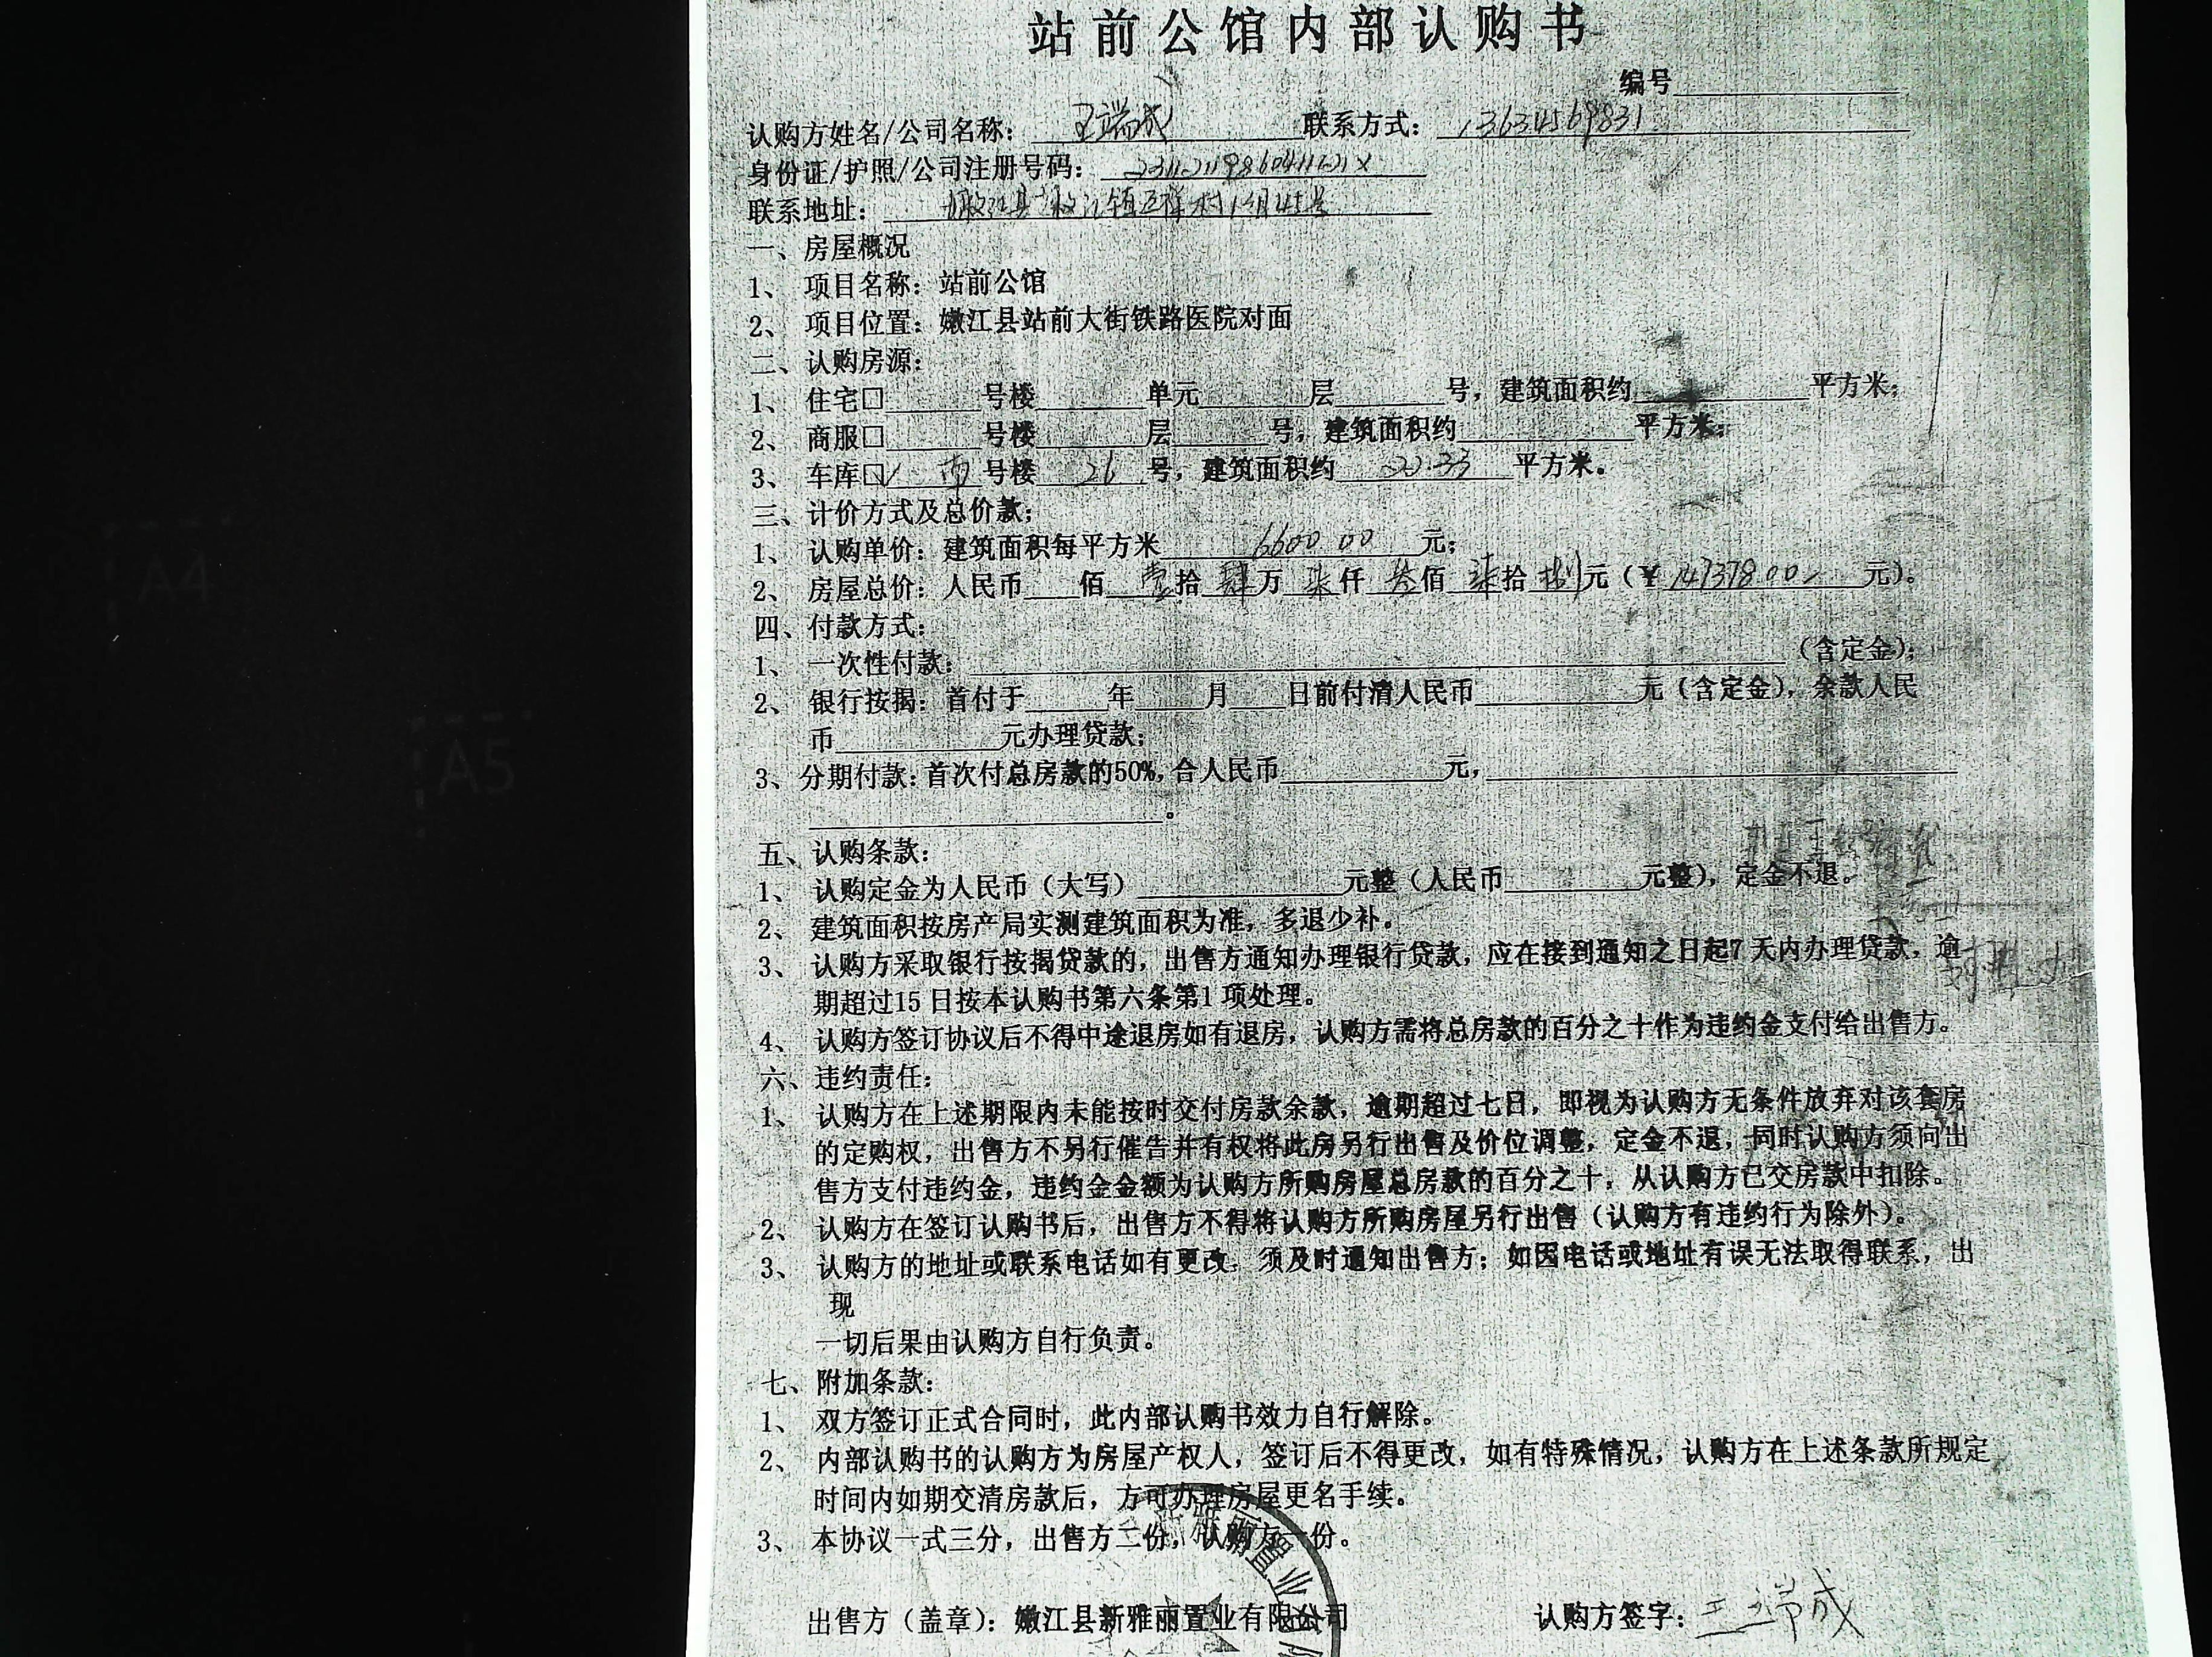 站前公馆内部认购书
编号
认购方姓名/公司名称：王瑞成 联系方式：13634569831
身份证/护照/公司注册号码：
联系地址：嫩江县嫩江镇
一、房屋概况
1、项目名称：站前公馆
2、项目位置：嫩江县站前大街铁路医院对面
二、认购房源：
1、住宅□____号楼____单元____层____号，建筑面积约____平方米；
2、商服□____号楼____层____号，建筑面积约____平方米；
3、车库☑ 南 号楼 26 号，建筑面积约 22.33 平方米。
三、计价方式及总价款；
1、认购单价：建筑面积每平方米 6600.00 元；
2、房屋总价：人民币____佰 壹 拾 肆 万 柒 仟 叁 佰 柒 拾 捌 元（￥147378.00 元）。
四、付款方式：
1、一次性付款：____（含定金）；
2、银行按揭：首付于____年____月____日前付清人民币____元（含定金），余款人民
币____元办理贷款；
3、分期付款：首次付总房款的50%，合人民币____元，____
____。
五、认购条款：
1、认购定金为人民币（大写）____元整（人民币____元整），定金不退。
2、建筑面积按房产局实测建筑面积为准，多退少补。
3、认购方采取银行按揭贷款的，出售方通知办理银行贷款，应在接到通知之日起7天内办理贷款，逾
期超过15日按本认购书第六条第1项处理。
4、认购方签订协议后不得中途退房如有退房，认购方需将总房款的百分之十作为违约金支付给出售方。
六、违约责任：
1、认购方在上述期限内未能按时交付房款余款，逾期超过七日，即视为认购方无条件放弃对该套房
的定购权，出售方不另行催告并有权将此房另行出售及价位调整，定金不退，同时认购方须向出
售方支付违约金，违约金金额为认购方所购房屋总房款的百分之十，从认购方已交房款中扣除。
2、认购方在签订认购书后，出售方不得将认购方所购房屋另行出售（认购方有违约行为除外）。
3、认购方的地址或联系电话如有更改，须及时通知出售方；如因电话或地址有误无法取得联系，出
现
一切后果由认购方自行负责。
七、附加条款：
1、双方签订正式合同时，此内部认购书效力自行解除。
2、内部认购书的认购方为房屋产权人，签订后不得更改，如有特殊情况，认购方在上述条款所规定
时间内如期交清房款后，方可办理房屋更名手续。
3、本协议一式三分，出售方二份，认购方一份。
出售方（盖章）：嫩江县新雅丽置业有限公司 认购方签字：王瑞成
A4
A5